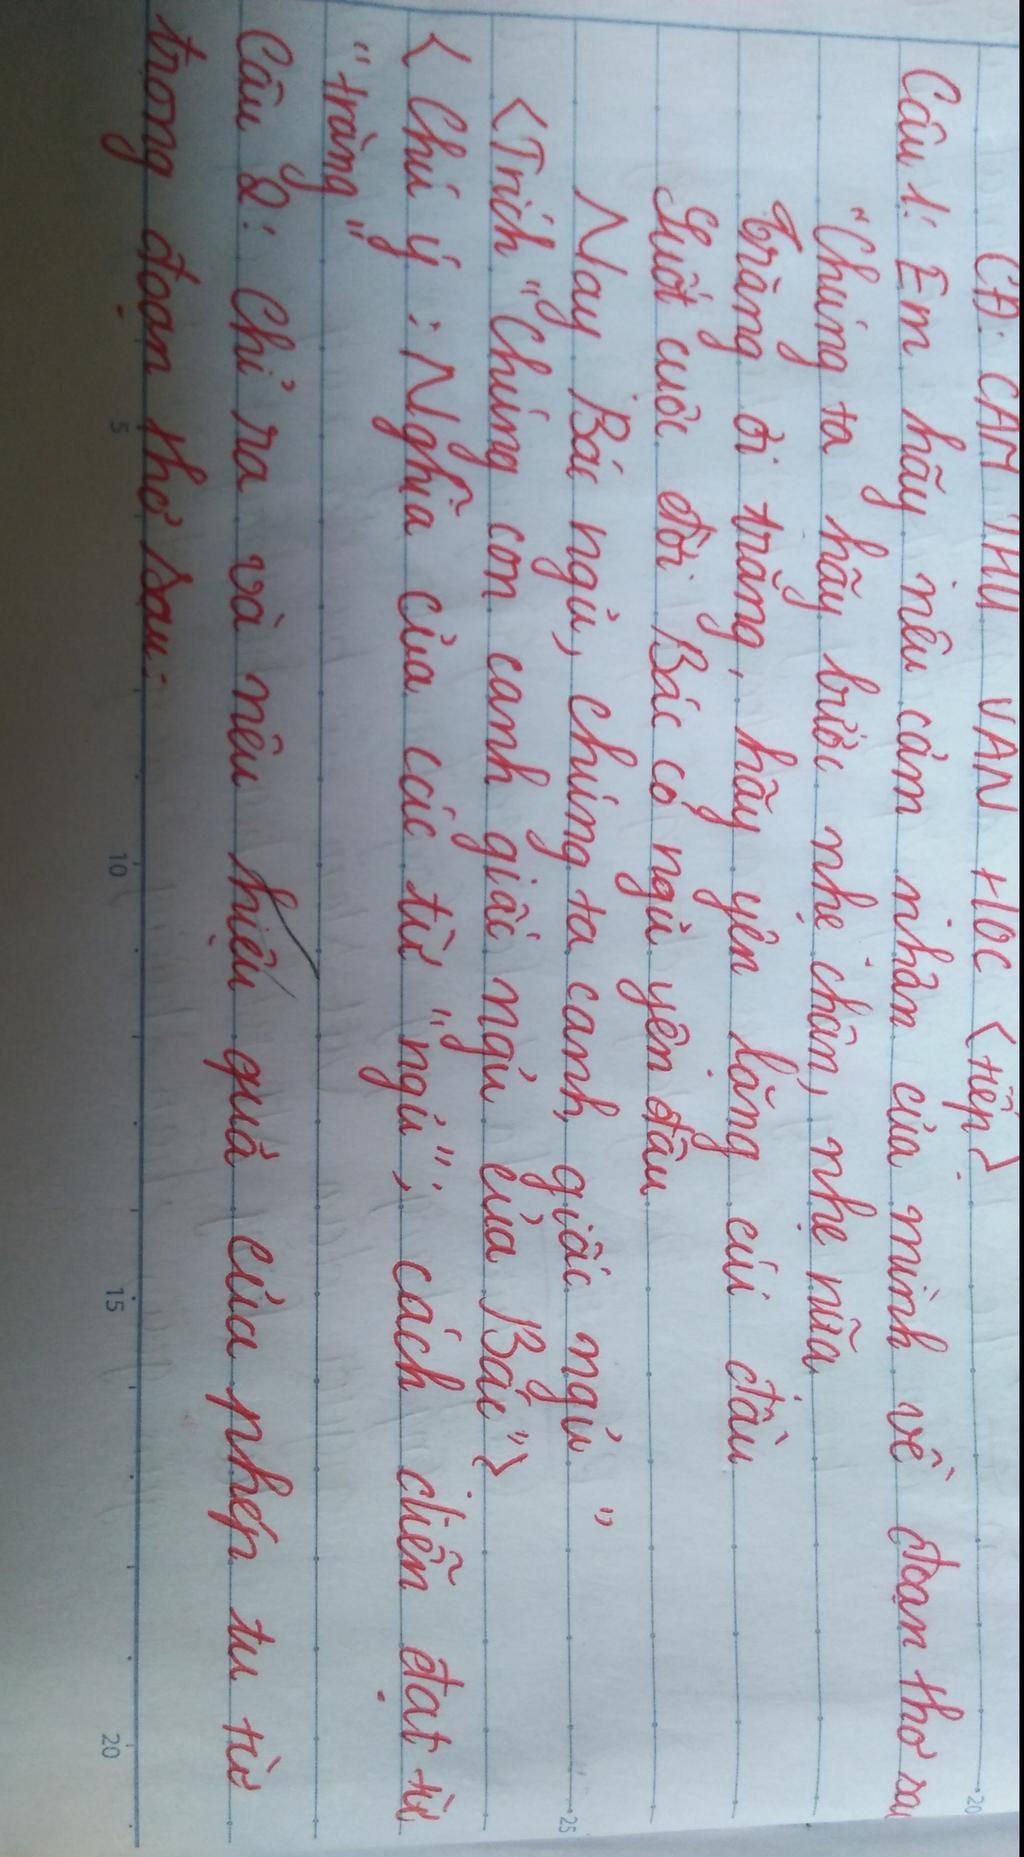 CĐ: CẢM THỤ VĂN HỌC <tiếp>
Câu 1: Em hãy nêu cảm nhận của mình về đoạn thơ sau
"Chúng ta hãy bước nhẹ chân, nhẹ nữa
Trăng ơi trăng, hãy yên lặng cúi đầu
Suốt cuộc đời Bác có ngủ yên đâu
Nay Bác ngủ, chúng ta canh giấc ngủ"
<Trích "Chúng con canh giấc ngủ của Bác">
< Chú ý: Nghĩa của các từ "ngủ"; cách diễn đạt từ
"trăng"
Câu 2: Chỉ ra và nêu hiệu quả của phép tu từ
trong đoạn thơ sau:
20
25
5
10
15
20